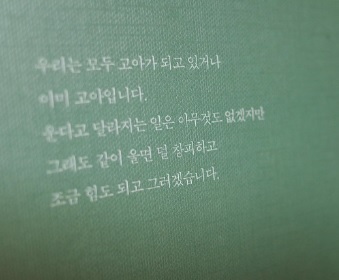 우리는 모두 고아가 되고 있거나
이미 고아입니다.
운다고 달라지는 일은 아무것도 없겠지만
그래도 같이 울면 덜 창피하고
조금 힘도 되고 그러겠습니다.